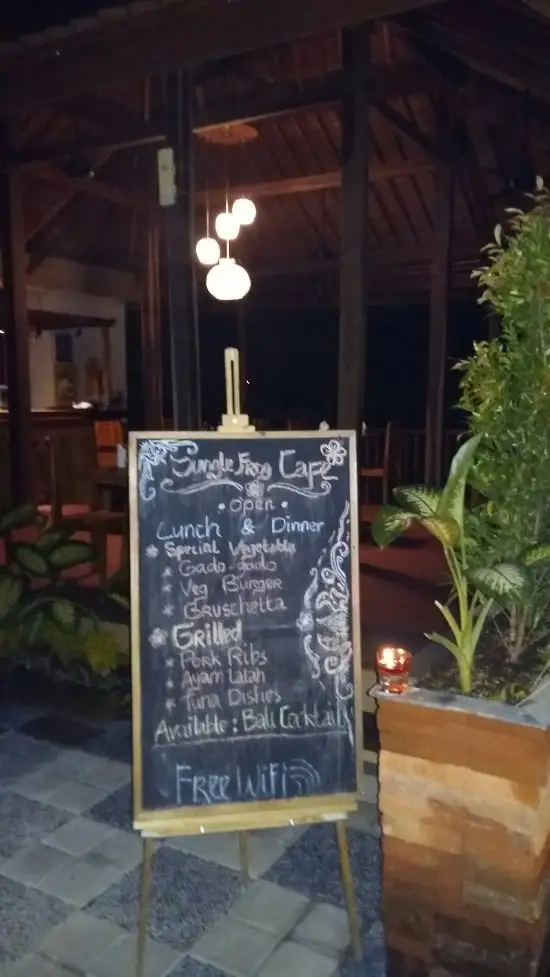 Jungle Frog Cafe
• open •
Lunch & Dinner
Special Vegetable
* Gado-gado
* Veg Burger
* Gruschetta
Grilled
* Pork Ribs
* Ayam Lalah
* Tuna Dishes
Available : Bali Cocktail
Free WiFi